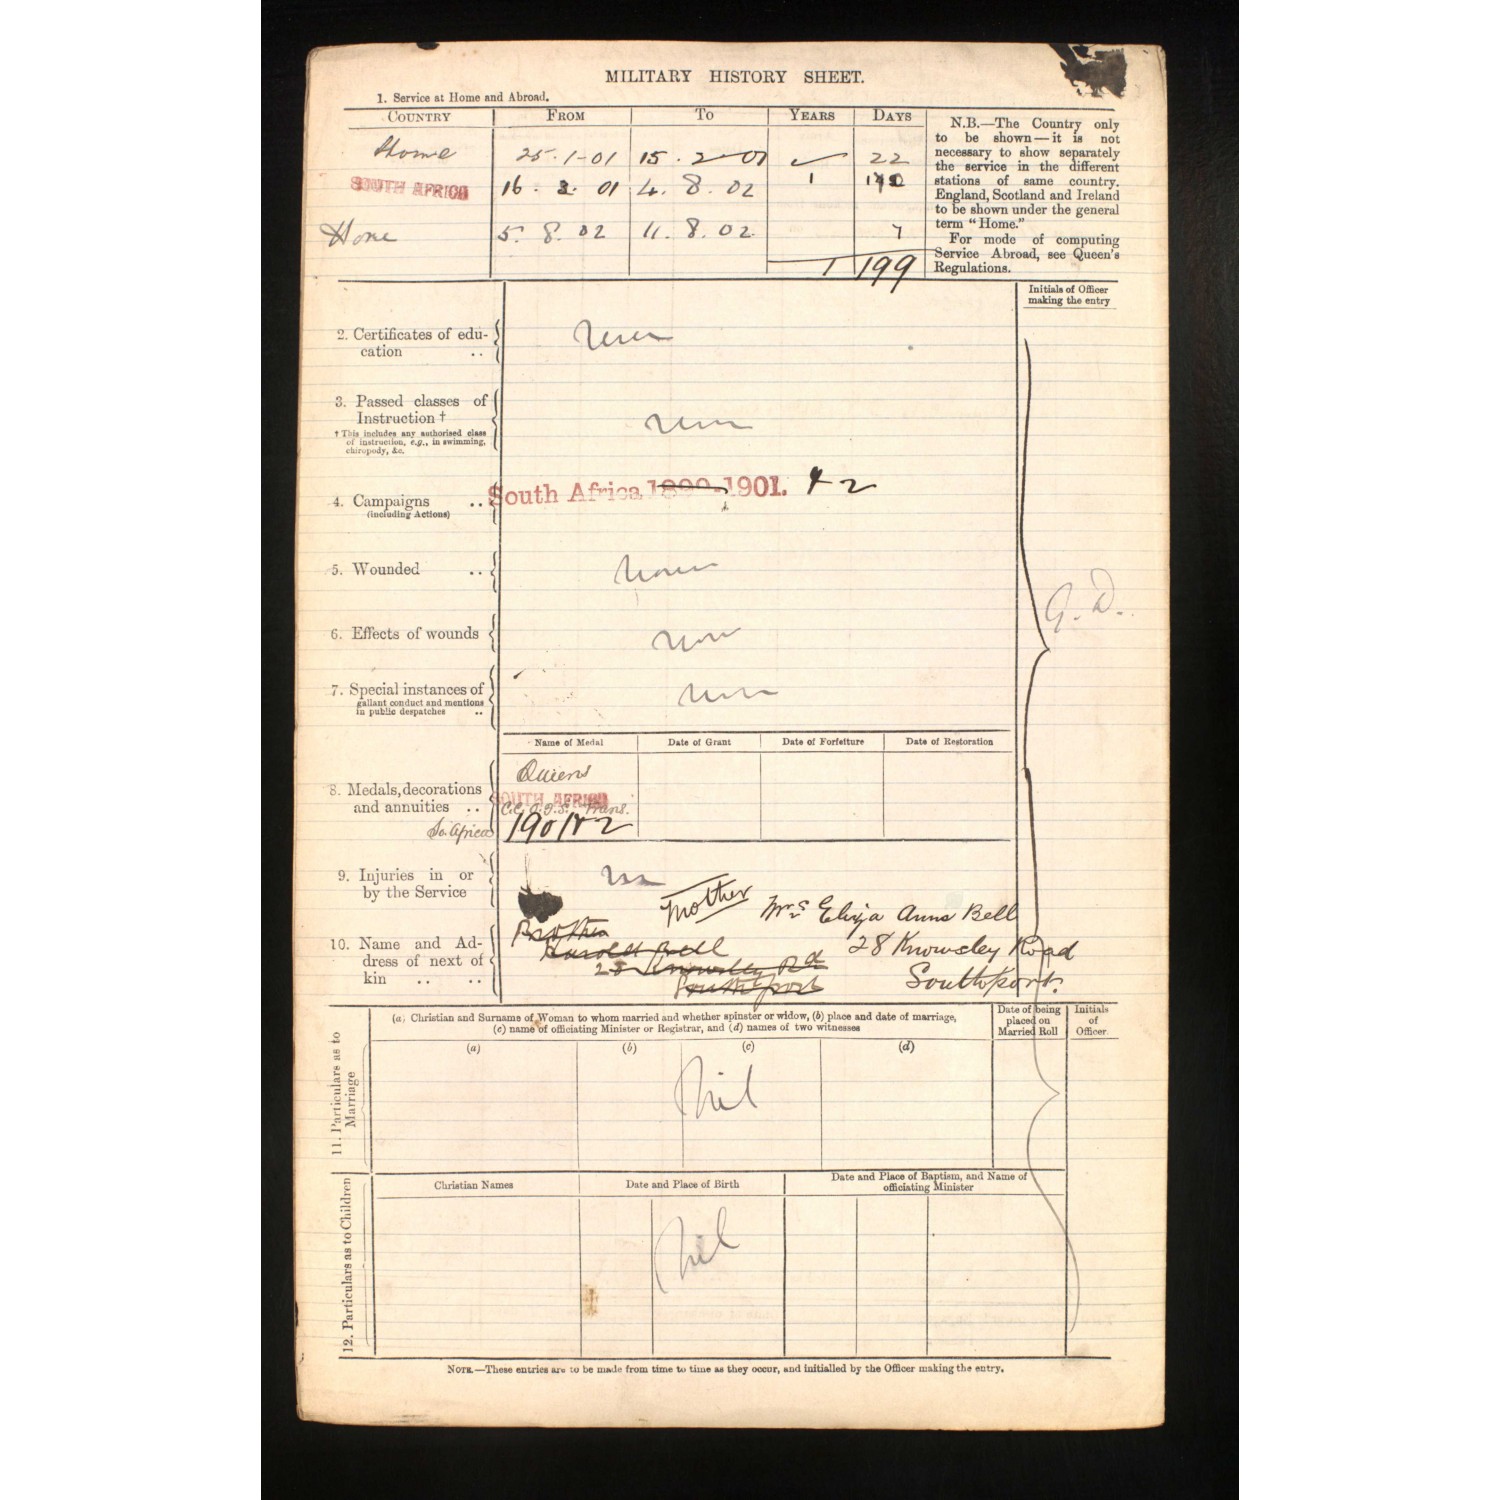 MILITARY HISTORY SHEET.
1. Service at Home and Abroad.
COUNTRY FROM TO YEARS DAYS
Home 25.1-01 15.2-01 22
SOUTH AFRICA 16. 2. 01 4. 8. 02 1
Home 5. 8. 02 11. 8. 02. 7
1 199
N.B.—The Country only
to be shown—it is not
necessary to show separately
the service in the different
stations of same country.
England, Scotland and Ireland
to be shown under the general
term “Home.”
For mode of computing
Service Abroad, see Queen's
Regulations.
Initials of Officer
making the entry
2. Certificates of edu-
cation ..
3. Passed classes of
Instruction †
† This includes any authorised class
of instruction, e.g., in swimming,
chiropody, &c.
4. Campaigns ..
(including Actions)
South Africa 1899-1901. + 2
5. Wounded ..
None
6. Effects of wounds
7. Special instances of
gallant conduct and mentions
in public despatches ..
G. D.
Name of Medal Date of Grant Date of Forfeiture Date of Restoration
8. Medals, decorations
and annuities ..
So. Africa
Queens
SOUTH AFRICA
C.C. O.F.S. Trans.
1901+2
9. Injuries in or
by the Service
10. Name and Ad-
dress of next of
kin .. ..
Mother Mrs Eliza Anne Bell
28 Knowsley Road
Southport.
Brother
Harold Bell
28 Knowsley Rd
Southport
11. Particulars as to
Marriage
(a) Christian and Surname of Woman to whom married and whether spinster or widow, (b) place and date of marriage,
(c) name of officiating Minister or Registrar, and (d) names of two witnesses
Date of being
placed on
Married Roll
Initials
of
Officer
(a) (b) (c) (d)
Nil
12. Particulars as to Children
Christian Names Date and Place of Birth Date and Place of Baptism, and Name of
officiating Minister
Nil
NOTE.—These entries are to be made from time to time as they occur, and initialled by the Officer making the entry.